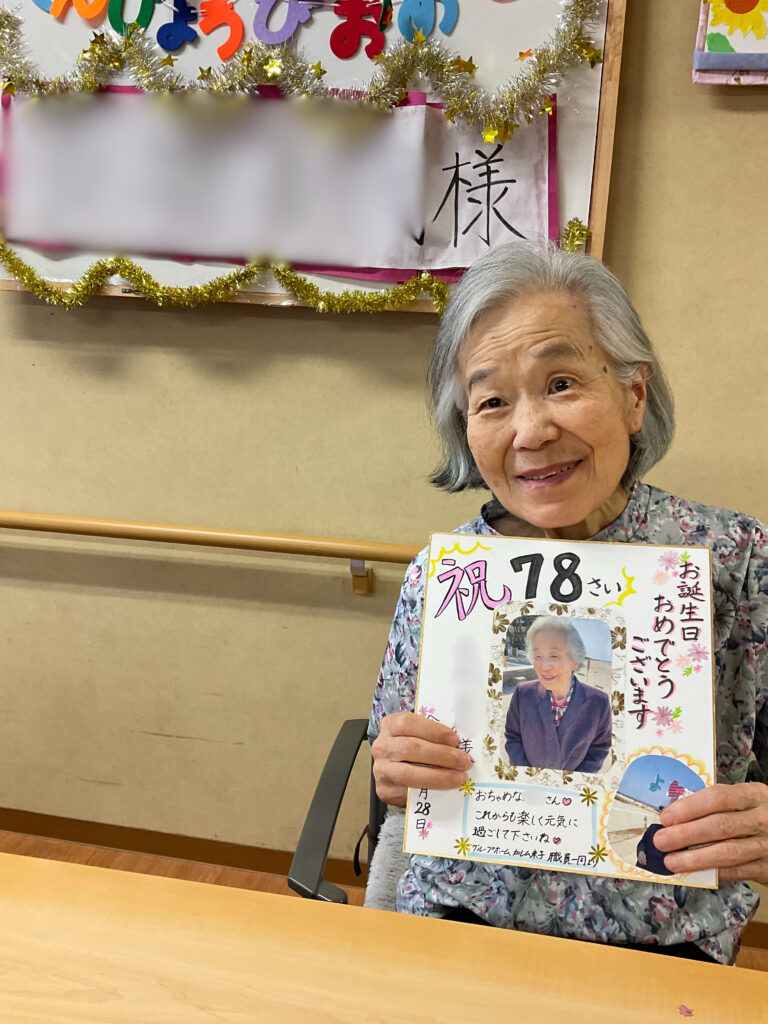 んじょうびお
様
祝 78さい
お誕生日
おめでとう
ございます
様
月28日
おちゃめな さん
これからも楽しく元気に
過ごして下さいね
グループホーム カルム米子 職員一同より